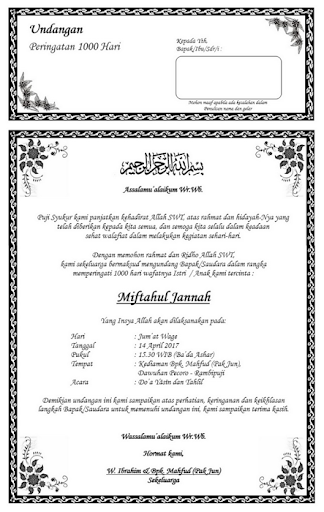 Undangan
Peringatan 1000 Hari
Kepada Yth.
Bapak/Ibu/Sdr/i :
Mohon maaf apabila ada kesalahan dalam
Penulisan nama dan gelar
بسم الله الرحمن الرحيم
Assalamu'alaikum Wr.Wb.
Puji Syukur kami panjatkan kehadirat Allah SWT, atas rahmat dan hidayah-Nya yang
telah diberikan kepada kita semua, dan semoga kita selalu dalam keadaan
sehat walafiat dalam melakukan kegiatan sehari-hari.
Dengan memohon rahmat dan Ridho Allah SWT,
kami sekeluarga bermaksud mengundang Bapak/Saudara dalam rangka
memperingati 1000 hari wafatnya Istri / Anak kami tercinta :
Miftahul Jannah
Yang Insya Allah akan dilaksanakan pada:
Hari : Jum'at Wage
Tanggal : 14 April 2017
Pukul : 15.30 WIB (Ba'da Ashar)
Tempat : Kediaman Bpk. Mahfud (Pak Jun),
Dawuhan Pecoro - Rambipuji
Acara : Do'a Yasin dan Tahlil
Demikian undangan ini kami sampaikan atas perhatian, keringanan dan keikhlasan
langkah Bapak/Saudara untuk memenuhi undangan ini, kami sampaikan terima kasih.
Wassalamu'alaikum Wr.Wb.
Hormat kami,
W. Ibrahim & Bpk. Mahfud (Pak Jun)
Sekeluarga